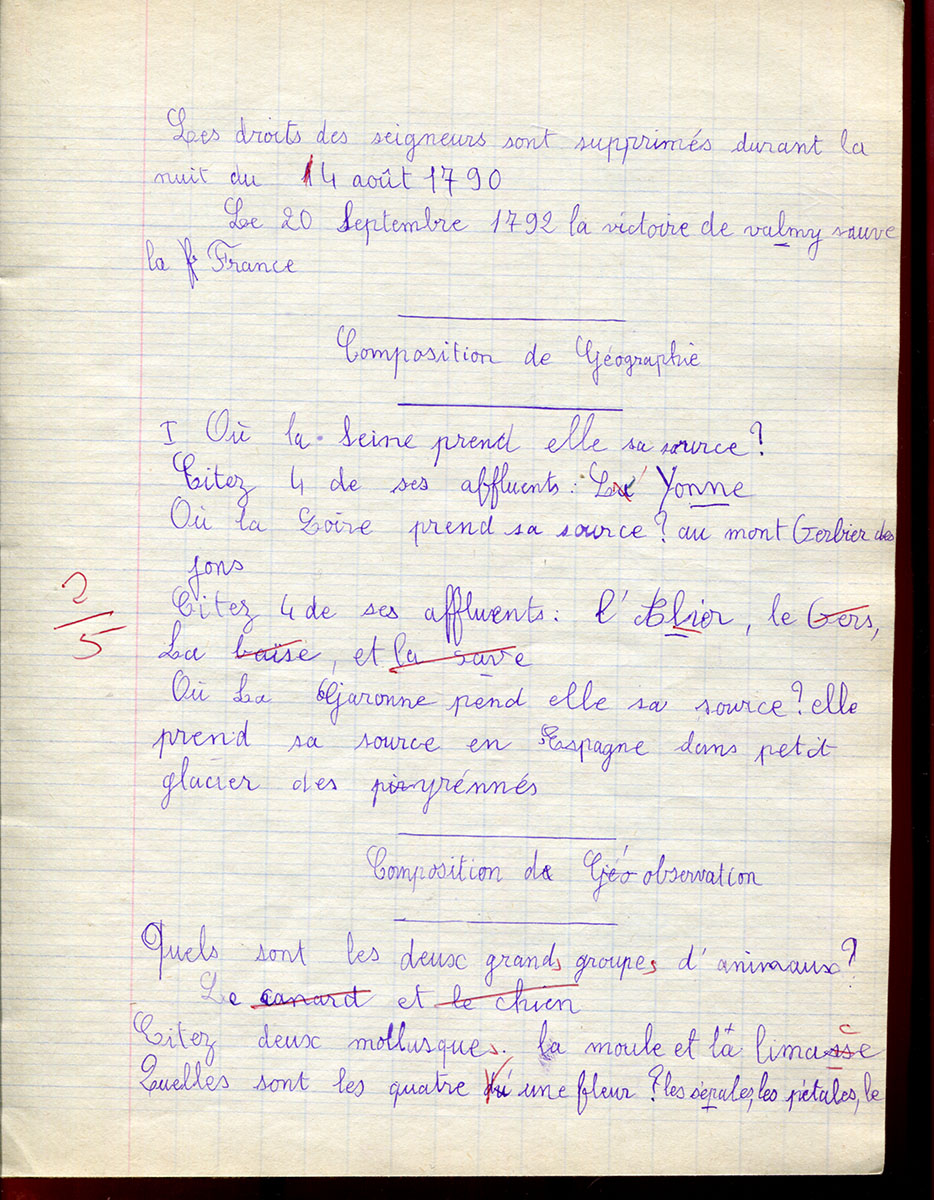 Les droits des seigneurs sont supprimés durant la
nuit du 14 août 1790
Le 20 Septembre 1792 la victoire de valmy sauve
la France
Composition de Géographie
I Où la Seine prend elle sa source?
Citez 4 de ses affluents: Yonne
Où la Loire prend sa source? au mont Gerbier des
jons
Citez 4 de ses affluents: l'Allier, le Gers,
2/5
La baïse, et la save
Où La Garonne pend elle sa source? elle
prend sa source en Espagne dans petit
glacier des pyrénnés
Composition de Géo observation
Quels sont les deux grands groupes d'animaux?
Le canard et le chien
Citez deux mollusques. la moule et la limasse
c
Quelles sont les quatre une fleur? les sépales, les pétales, le